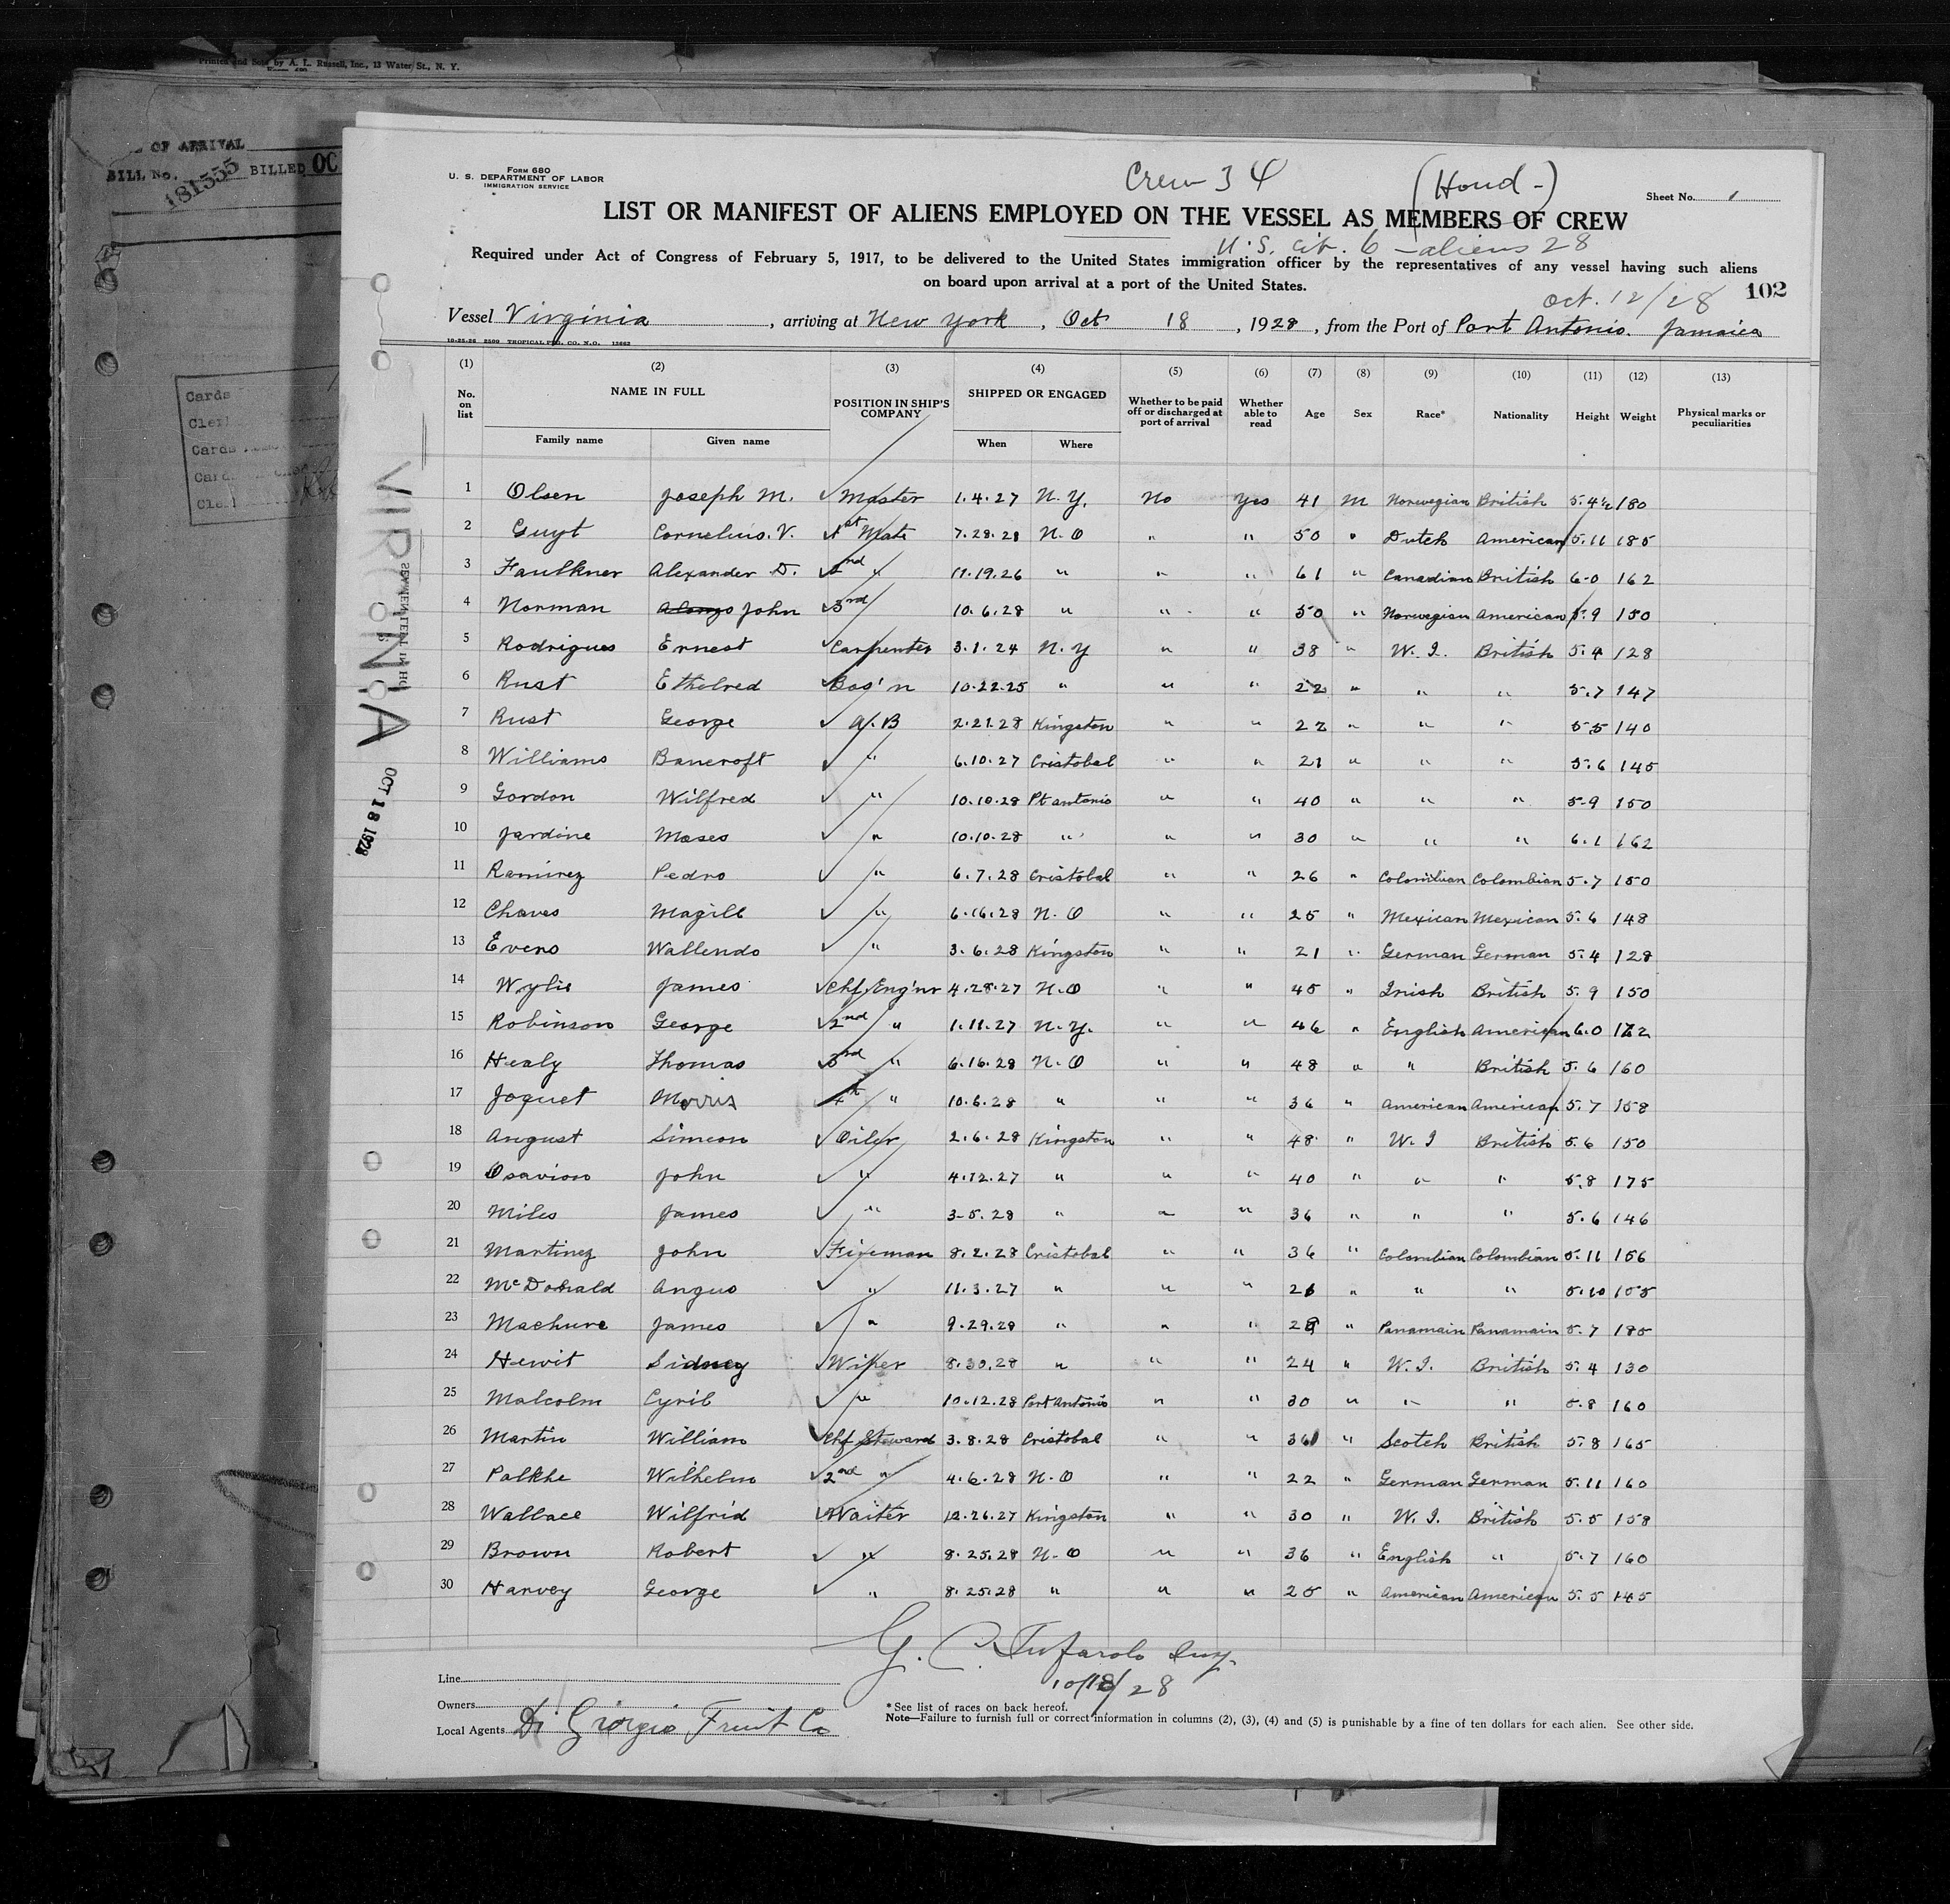 Printed and Sold by A. L. Russell, Inc., 13 Water St., N. Y.
OF ARRIVAL
BILL No. 181555 BILLED OC
Cards
Cler
Cards
Card
Cler
Form 680
U. S. DEPARTMENT OF LABOR
IMMIGRATION SERVICE
Crew 34
(Hond-)
Sheet No. 1
LIST OR MANIFEST OF ALIENS EMPLOYED ON THE VESSEL AS MEMBERS OF CREW
U.S. cit. 6 - aliens 28
Required under Act of Congress of February 5, 1917, to be delivered to the United States immigration officer by the representatives of any vessel having such aliens
on board upon arrival at a port of the United States.
Oct. 12/28 102
Vessel Virginia, arriving at New York, Oct 18, 1928, from the Port of Port Antonio. Jamaica
(1) (2) (3) (4) (5) (6) (7) (8) (9) (10) (11) (12) (13)
No. on list NAME IN FULL POSITION IN SHIP'S COMPANY SHIPPED OR ENGAGED Whether to be paid off or discharged at port of arrival Whether able to read Age Sex Race* Nationality Height Weight Physical marks or peculiarities
Family name Given name When Where
1 Olsen Joseph M. Master 1.4.27 N.Y. No Yes 41 M Norwegian British 5.4½ 180
2 Guyt Cornelius. V. 1st Mate 7.28.28 N.O " " 50 " Dutch American 5.11 185
3 Faulkner Alexander D. 2nd " 11.19.26 " " " 61 " Canadian British 6-0 162
4 Norman Alonzo John 3rd 10.6.28 " " " 50 " Norwegian American 5.9 150
5 Rodrigues Ernest Carpenter 3.1.24 N.Y " " 38 " W.I. British 5.4 128
6 Rust Ethelred Bos'n 10.22.25 " " " 22 " " " 5.7 147
7 Rust George A.B 2.21.28 Kingston " " 22 " " " 5.5 140
8 Williams Bancroft " 6.10.27 Cristobal " " 21 " " " 5.6 145
9 Gordon Wilfred " 10.10.28 Pt antonio " " 40 " " " 5.9 150
10 Jardine Moses " 10.10.28 " " " 30 " " " 6.1 162
11 Ramirez Pedro " 6.7.28 Cristobal " " 26 " Colombian Colombian 5.7 150
12 Chaves Magill " 6.16.28 N.O " " 25 " Mexican Mexican 5.6 148
13 Evers Wallendo " 3.6.28 Kingston " " 21 " German German 5.4 128
14 Wylie James Chf Eng'nr 4.28.27 N.O " " 45 " Irish British 5.9 150
15 Robinson George 2nd " 1.11.27 N.Y. " " 46 " English American 6.0 172
16 Healy Thomas 3rd " 6.16.28 N.O " " 48 " " British 5.6 160
17 Joquet Morris 4th " 10.6.28 " " " 36 " American American 5.7 158
18 August Simeon Oiler 2.6.28 Kingston " " 48 " W.I British 5.6 150
19 Osavion John " 4.12.27 " " " 40 " " " 5.8 175
20 Miles James " 3-5.28 " " " 36 " " " 5.6 146
21 Martinez John Fireman 8.2.28 Cristobal " " 36 " Colombian Colombian 5.11 156
22 McDonald Angus " 11.3.27 " " " 26 " " " 5.10 155
23 Machure James " 9.29.28 " " " 28 " Panamain Panamain 5.7 185
24 Hewit Sidney Wiper 8.30.28 " " " 24 " W.I. British 5.4 130
25 Malcolm Cyril " 10.12.28 Port Antonio " " 30 " " " 5.8 160
26 Martin William Chf Steward 3.8.28 Cristobal " " 36 " Scotch British 5.8 165
27 Palkhe Wilhelm 2nd " 4.6.28 N.O " " 22 " German German 5.11 160
28 Wallace Wilfrid Waiter 12.26.27 Kingston " " 30 " W.I. British 5.5 158
29 Brown Robert " 8.25.28 N.O " " 36 " English " 5.7 160
30 Harvey George " 8.25.28 " " " 25 " American American 5.5 145
VIRGINIA
OCT 18 1928
G. C. Tufarolo Insp.
10/18/28
Line
Owners
Local Agents Di Giorgio Fruit Co
*See list of races on back hereof.
Note—Failure to furnish full or correct information in columns (2), (3), (4) and (5) is punishable by a fine of ten dollars for each alien. See other side.